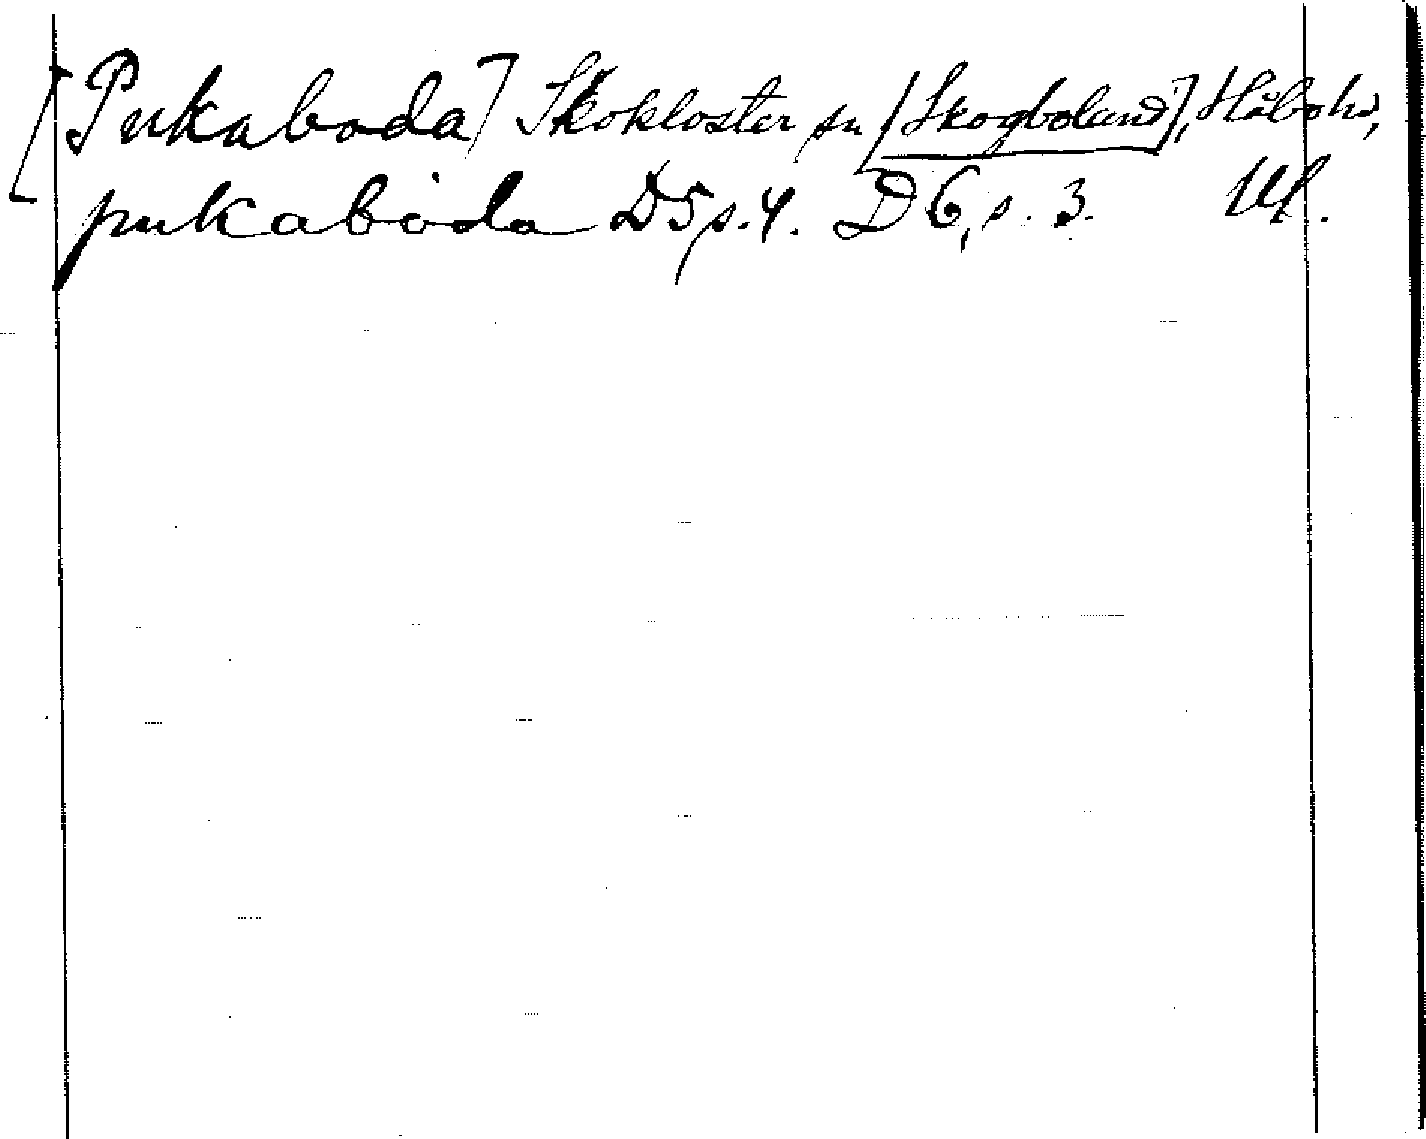 [Pukaboda] Skokloster sn [Skogboland], Håbo hd,
pukabòda D5 s. 4. D6, s. 3. Upl.